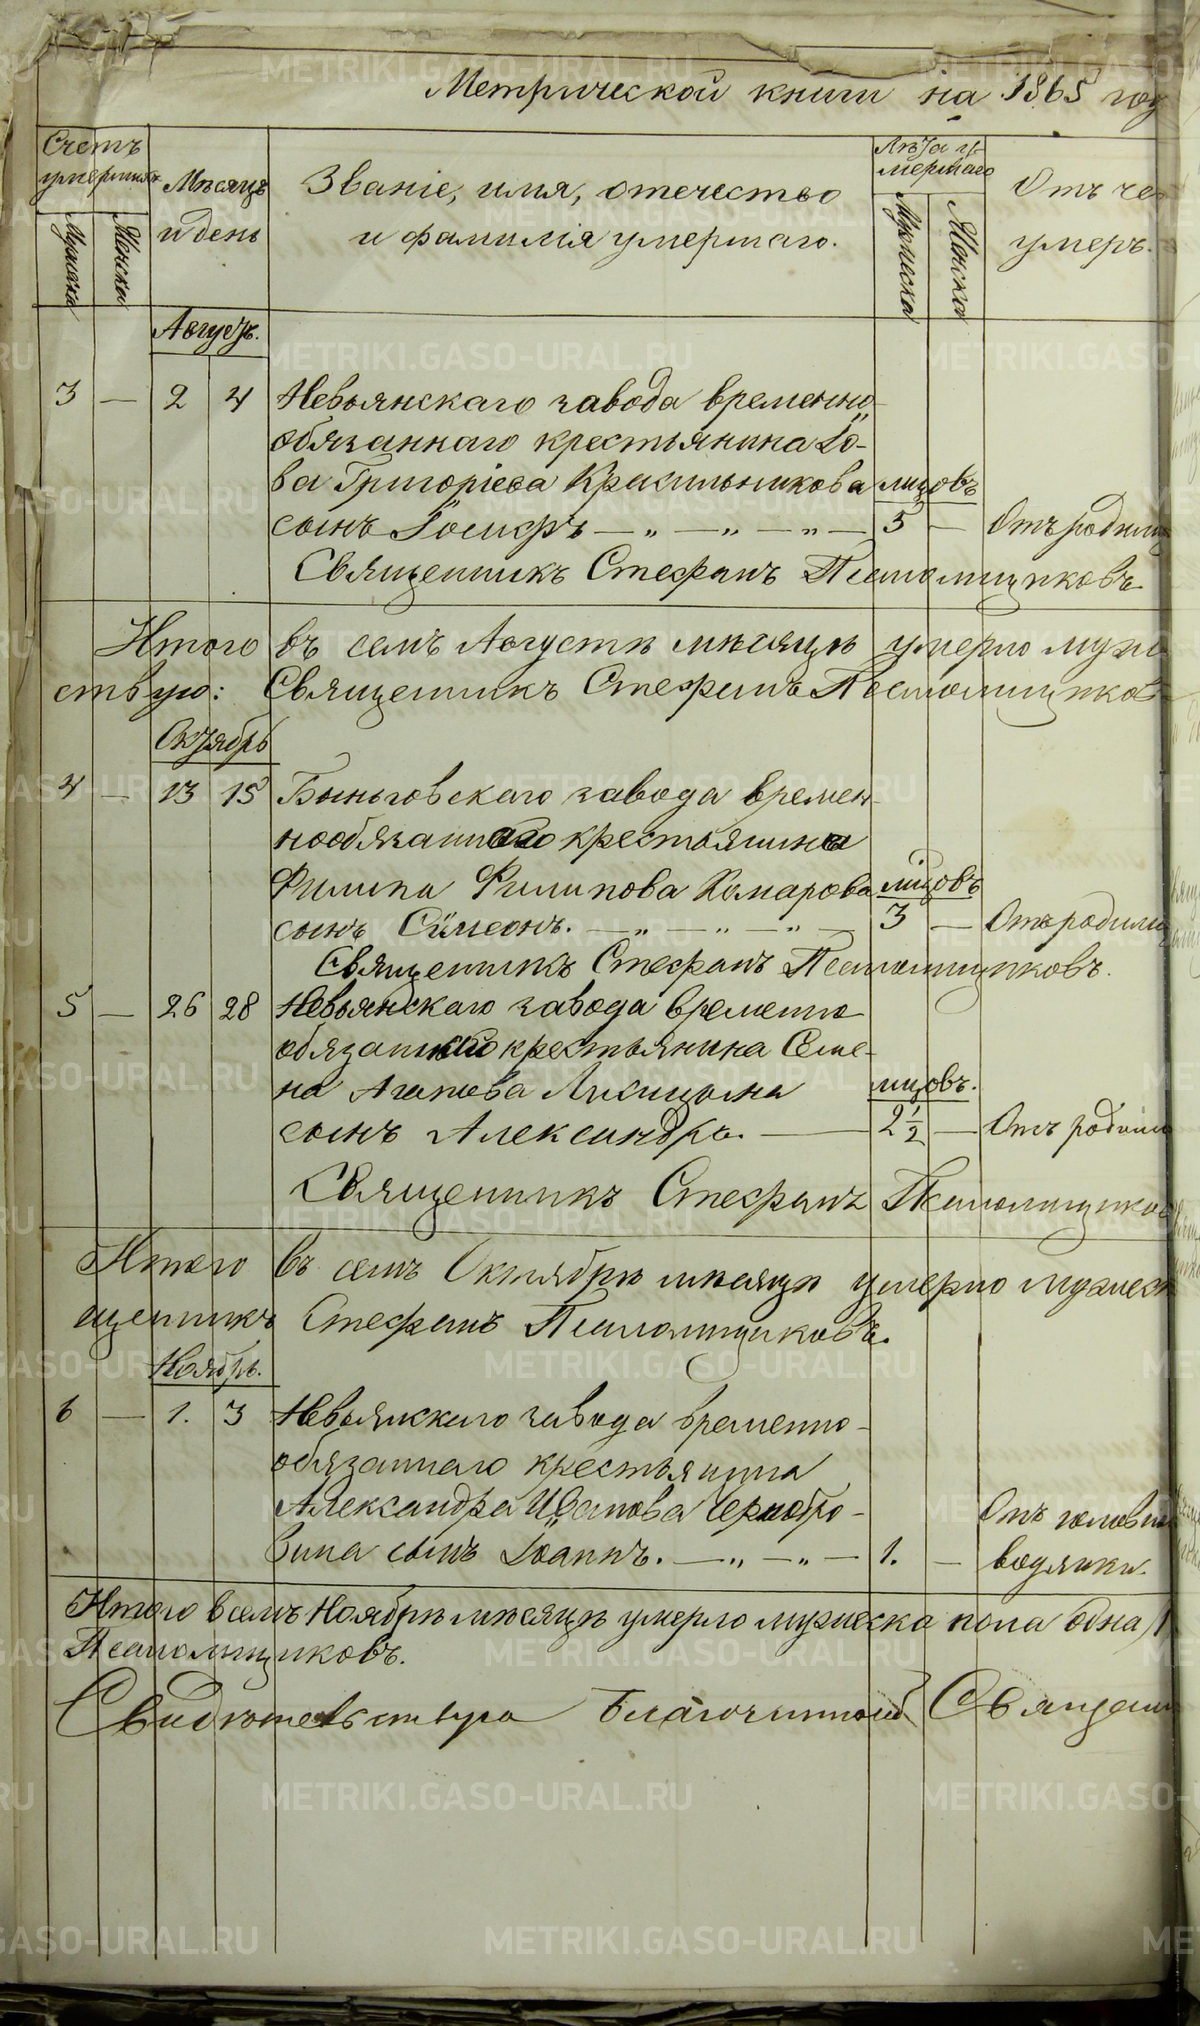 Метрической книги на 1865 год
Счетъ умершихъ
Мѣсяцъ и день
Званіе, имя, отечество
и фамилія умершаго.
Лѣта умершаго
Отъ чего
умеръ.
Мужска
Женска
Мужеска
Женска
Августъ.
3 — 2 4 Невьянскаго завода временно
обязаннаго крестьянина Іо-
ва Григоріева Красильникова
сынъ Іосифъ — „ — „ — „ — 5 — Отъ родим
Священникъ Стефанъ Псаломщиковъ
Итого въ семъ Августѣ мѣсяцѣ умерло муже
Священникъ Стефанъ Псаломщиков
Октябрь
4 — 13 15 Быньговскаго завода времен-
нообязаннаго крестьянина
Филипа Филипова Комарова
сынъ Сѵмеонъ. — „ — „ — „ — 3 — Отъ родим
Священникъ Стефанъ Псаломщиковъ.
5 — 26 28 Невьянскаго завода временно
обязаннаго крестьянина Семе-
на Агапова
сынъ Александръ. — 2½ — Отъ родим
Священникъ Стефанъ Псаломщиков
Итого въ семъ Октябрѣ мѣсяцѣ умерло мужеск
щенникъ Стефанъ Псаломщиковъ.
Ноябрь.
6 — 1. 3 Невьянскаго завода временно-
обязаннаго крестьянина
Александра Иванова Чернобро-
вина сынъ Іоаннъ. — „ — „ — 1. — Отъ головн
водянки.
Итого в семъ Ноябрѣ мѣсяцѣ умерло мужеска пола одна, 1
Псаломщиковъ.
Свидѣтельствую Благочинной Священ
METRIKI.GASO-URAL.RU